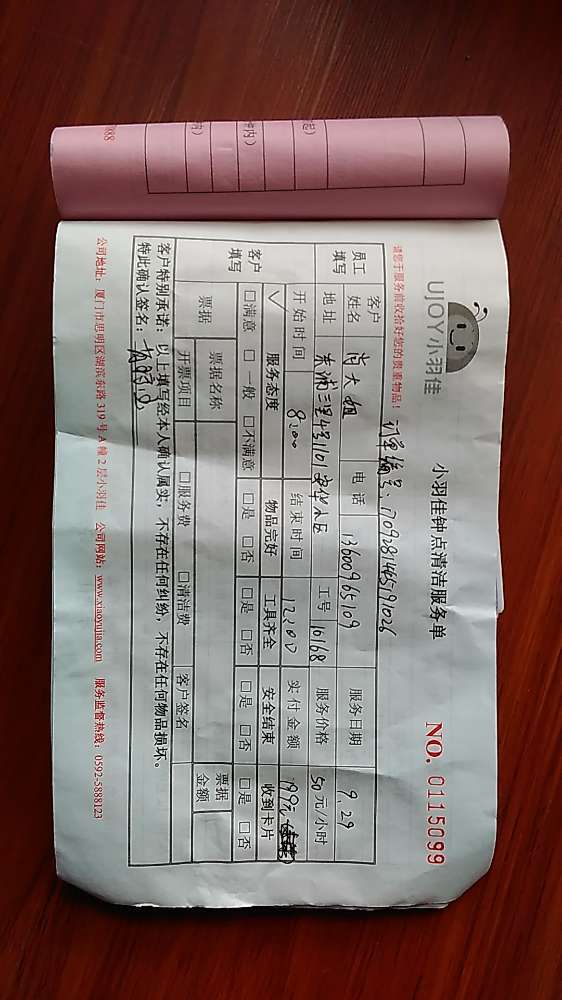 UJOY小羽佳
小羽佳钟点清洁服务单
NO. 0115099
请您于服务前收拾好您的贵重物品!
订单编号:
员工填写
客户姓名 肖大姐 电话 13600965109 服务日期 9.29
地址 工号 10168 服务价格 50元/小时
开始时间 8:00 结束时间 12:00 实付金额 199元
客户填写
服务态度 物品完好 工具齐全 安全结束 收到卡片
□满意 □一般 □不满意 □是 □否 □是 □否 □是 □否 □是 □否
票据 票据名称 票据金额
开票项目 □服务费 □清洁费 客户签名
客户特别承诺:以上填写经本人确认属实,不存在任何纠纷,不存在任何物品损坏。
特此确认签名:
公司地址:厦门市思明区湖滨东路 319 号 A 幢 2 层小羽佳 公司网站:www.xiaoyujia.com 服务监督热线:0592-5888123